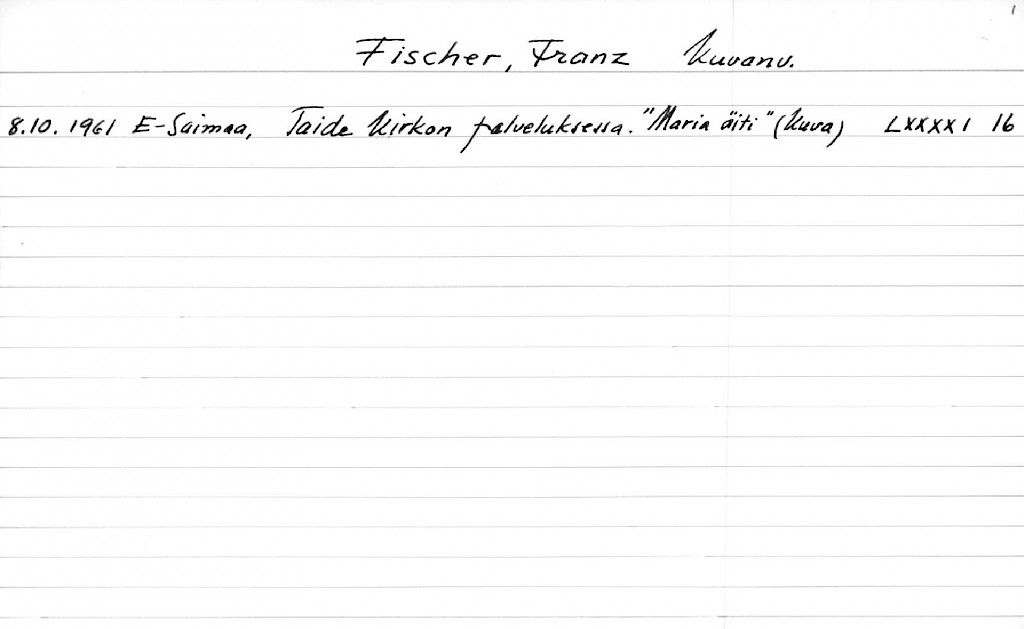 1
Fischer, Franz Kuvanv.
8.10. 1961 E-Saimaa, Taide Kirkon palveluksessa. "Maria äiti" (Kuva) LXXXXI 16